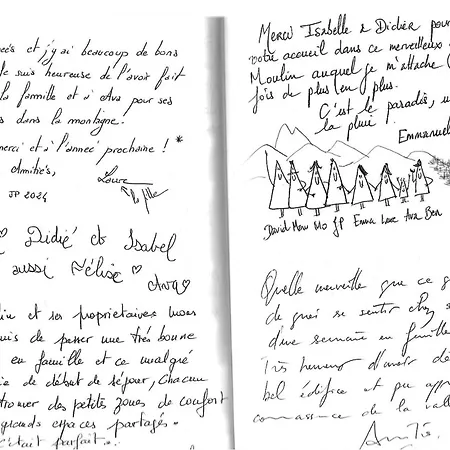 et j'y ai beaucoup de bons
suis heureuse de l'avoir fait
la famille et à Ava pour ses
dans la montagne.
merci et à l'année prochaine ! *
Amitiés,
Laure
JP 2024
la fille
Didié et Isabel
aussi Félise
Ava
et ses propriétaires nous
de passer une très bonne
en famille et ce malgré
de début de séjour, chacun
trouver des petites zones de confort
grands espaces partagés.
C'était parfait.
Merci Isabelle & Didier pour
votre accueil dans ce merveilleux
Moulin auquel je m'attache
fois de plus en plus.
C'est le paradis,
la pluie
Emmanuel
David Mow Mo JP Emma Laure Ava Ben
Quelle merveille que ce
de quoi se sentir chez
d'une semaine en famille
Très heureux d'avoir
bel édifice et pu
connaissance de la